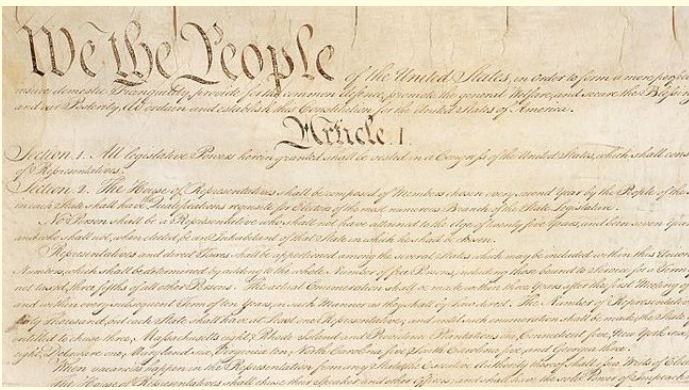 We the People of the United States, in Order to form a more perfec
insure domestic Tranquility, provide for the common defence, promote the general Welfare, and secure the Blessing
and our Posterity, do ordain and establish this Constitution for the United States of America.
Article. I.
Section. 1. All legislative Powers herein granted shall be vested in a Congress of the United States, which shall cons
of Representatives.
Section. 2. The House of Representatives shall be composed of Members chosen every second Year by the People of the
in each State shall have Qualifications requisite for Electors of the most numerous Branch of the State Legislature.
No Person shall be a Representative who shall not have attained to the Age of twenty five Years, and been seven Years
and who shall not, when elected, be an Inhabitant of that State in which he shall be chosen.
Representatives and direct Taxes shall be apportioned among the several States which may be included within this Union
Numbers, which shall be determined by adding to the whole Number of free Persons, including those bound to Service for a Term
not taxed, three fifths of all other Persons. The actual Enumeration shall be made within three Years after the first Meeting of
and within every subsequent Term of ten Years, in such Manner as they shall by Law direct. The Number of Representatives
thirty Thousand, but each State shall have at Least one Representative; and until such enumeration shall be made, the State
entitled to chuse three, Massachusetts eight, Rhode Island and Providence Plantations one, Connecticut five, New York six,
eight, Delaware one, Maryland six, Virginia ten, North Carolina five, South Carolina five, and Georgia three.
When vacancies happen in the Representation from any State, the Executive Authority thereof shall issue Writs of Elec
The House of Representatives shall chuse their Speaker and other Officers; and shall have the sole Power of Impeach